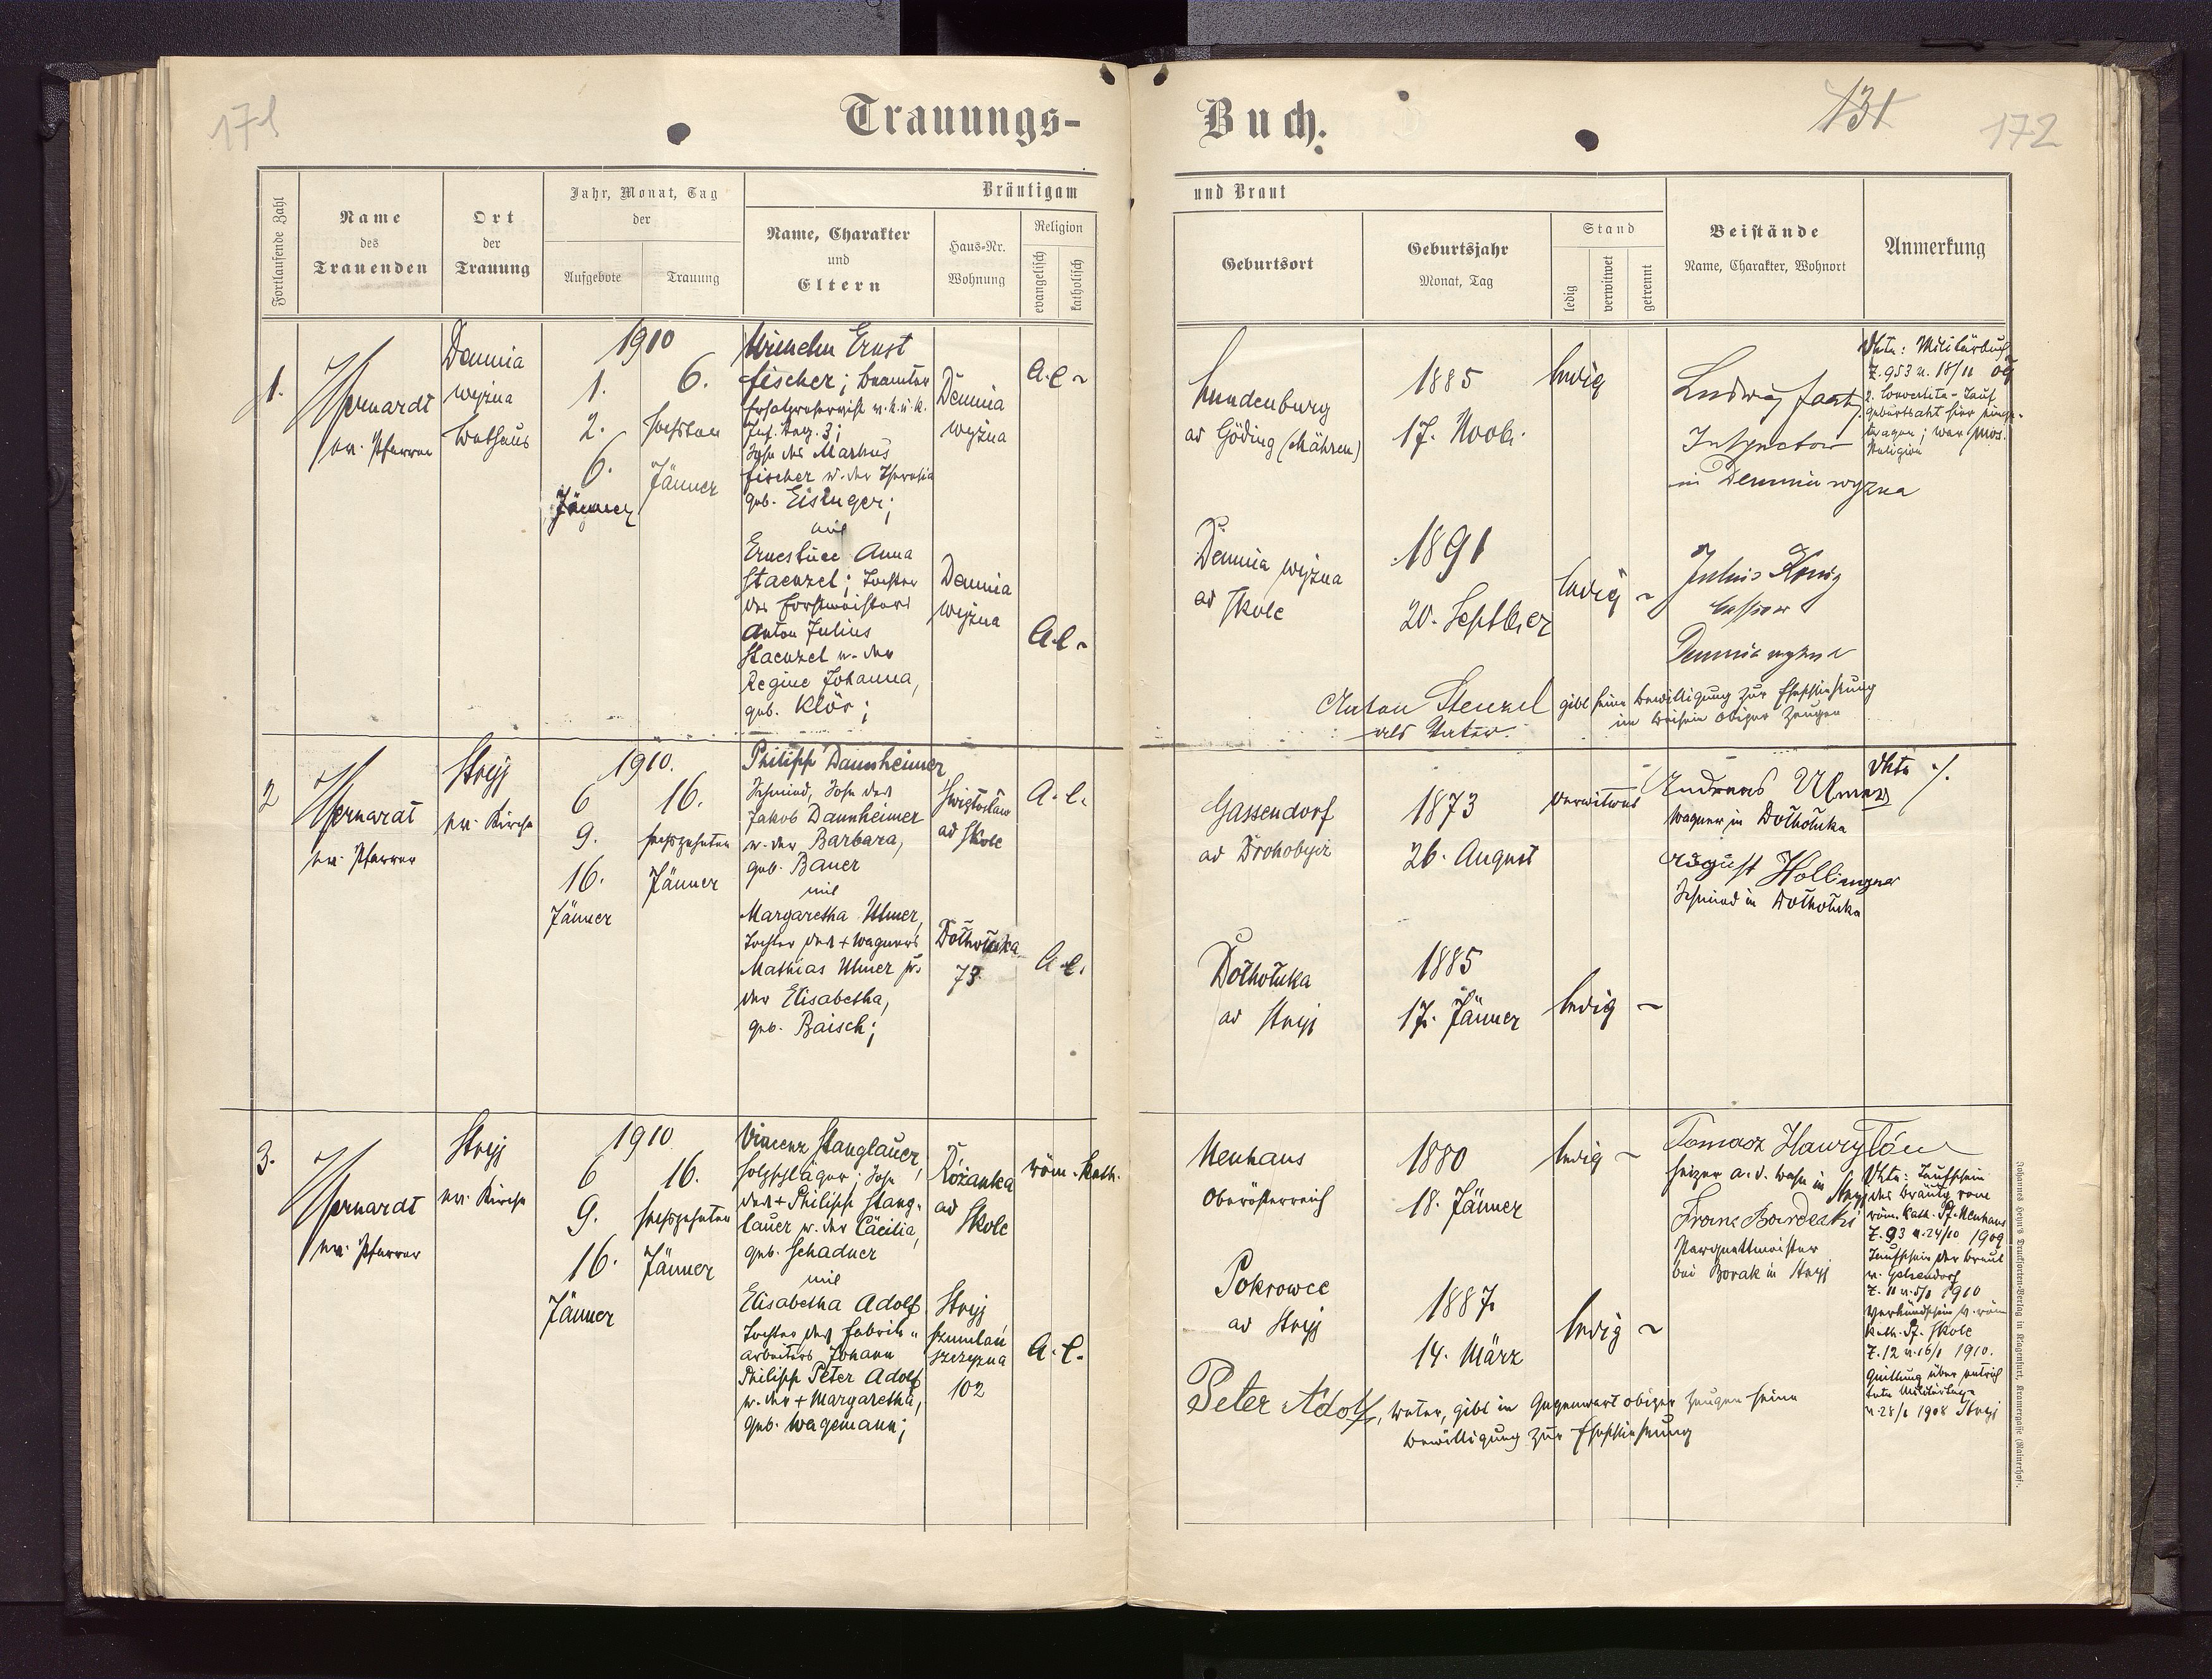 171
Trauungs-
Buch.
131
172
Fortlaufende Zahl
Name
des
Trauenden
Ort
der
Trauung
Jahr, Monat, Tag
der
Aufgebote
Trauung
Bräutigam
Name, Charakter
und
Eltern
Haus-Nr.
Wohnung
Religion
evangelisch
katholisch
und Braut
Geburtsort
Geburtsjahr
Monat, Tag
Stand
ledig
verwitwet
getrennt
Beistände
Name, Charakter, Wohnort
Anmerkung
1.
ev. Pfarrer
Demnia
wyżna
Bethaus
1910
1.
2.
6.
Jänner
6.
sechsten
Jänner
Ernst
Fischer; Beamter
Ersatzreservist
Sohn des Markus
Fischer u. der Theresia
geb.
mit
Ernestine Anna
Staenzel; Tochter
des Forstmeisters
Anton Julius
Staenzel u. der
Regine Johanna,
geb. Klör;
Demnia
wyżna
Demnia
wyżna
A.C.
A.C.
Lundenburg
ad Göding (Mähren)
1885
17. Novb.
ledig
Ludwig
Inspector
in Demnia wyżna
Z. 953 u. 18/11 09
Religion
Demnia wyżna
ad Skole
1891
20. Septber
ledig
Julius König
Demnia wyżna
Anton Stenzel gibt seine Bewilligung zur Eheschließung
als Vater.
im Beisein obiger Zeugen
2
ev. Pfarrer
Stryj
ev. Kirche
1910.
6
9.
16.
Jänner
16.
sechszehnten
Jänner
Philipp Dannheimer,
Schmied, Sohn des
Jakob Dannheimer
u. der Barbara,
geb. Bauer
mit
Margaretha Ulmer,
Tochter des + Wagners
Mathias Ulmer u.
der Elisabetha,
geb. Baisch;
ad Skole
Dołhołuka
73.
A.C.
A.C.
Gassendorf
ad Drohobycz
1873
26. August
verwitwet
Andreas Ulmer
Wagner in Dołhołuka
August
Schmied in Dołhołuka
Dołhołuka
ad Stryj
1885
17. Jänner
ledig
3.
ev. Pfarrer
Stryj
ev. Kirche
1910
6
9.
16.
Jänner
16.
sechszehnten
Jänner
Vincenz Stanglauer,
Holzschläger; Sohn
des + Philipp Stang-
lauer u. der Cäcilia,
geb. Schaduer
mit
Elisabetha Adolf
Tochter des Fabrik-
arbeiters Johann
Philipp Peter Adolf
u. der + Margaretha,
geb. Wagemann;
Różanka
ad
Skole
Stryj
102
röm. kath.
A.C.
Neuhaus
Oberösterreich
1880
18. Jänner
ledig
Tomasz Hawryłów
Heizer a. d. Bahn in Stryj
Parquettmeister
bei Borak in Stryj
Taufschein
des Bräutig. vom
röm. kath. Pf. Neuhaus
Z. 93 u. 24/10 1909
Taufschein der Braut
v. Gelsendorf
röm.
kath. Pf. Skole
Z. 12 u. 16/1 1910.
Quittung über
Pokrowce
ad Stryj
1887.
14. März
ledig
Peter Adolf, Vater, gibt in Gegenwart obiger Zeugen seine
Bewilligung zur Eheschließung
Johannes Heyn's Drucksorten-Verlag in Klagenfurt, Kramergasse (Rainerhof).